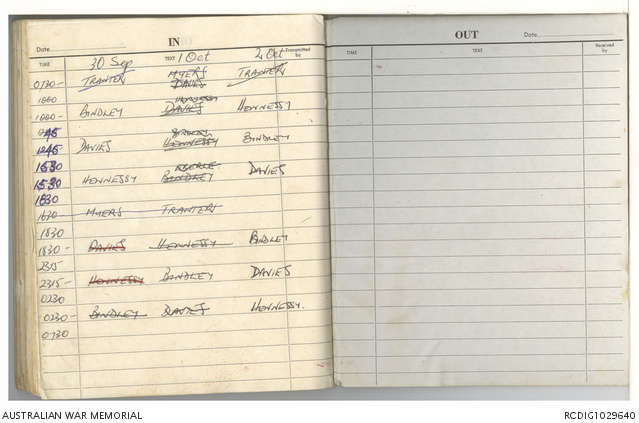 IN
Date
TIME TEXT Transmitted by
30 Sep 1 Oct 2 Oct
0730- TRANTER MYERS TRANTER
DAVIES
1000
1000- BINDLEY DAVIES HENNESSY
BINDLEY
1245 DAVIES HENNESSY BINDLEY
1530
1530 HENNESSY BINDLEY DAVIES
1630
1630 MYERS TRANTER
1830
1830- DAVIES HENNESSY BINDLEY
2315
2315- HENNESSY BINDLEY DAVIES
0230
0230- BINDLEY DAVIES HENNESSY.
0730
OUT
Date
TIME TEXT Received by
AUSTRALIAN WAR MEMORIAL
RCDIG1029640